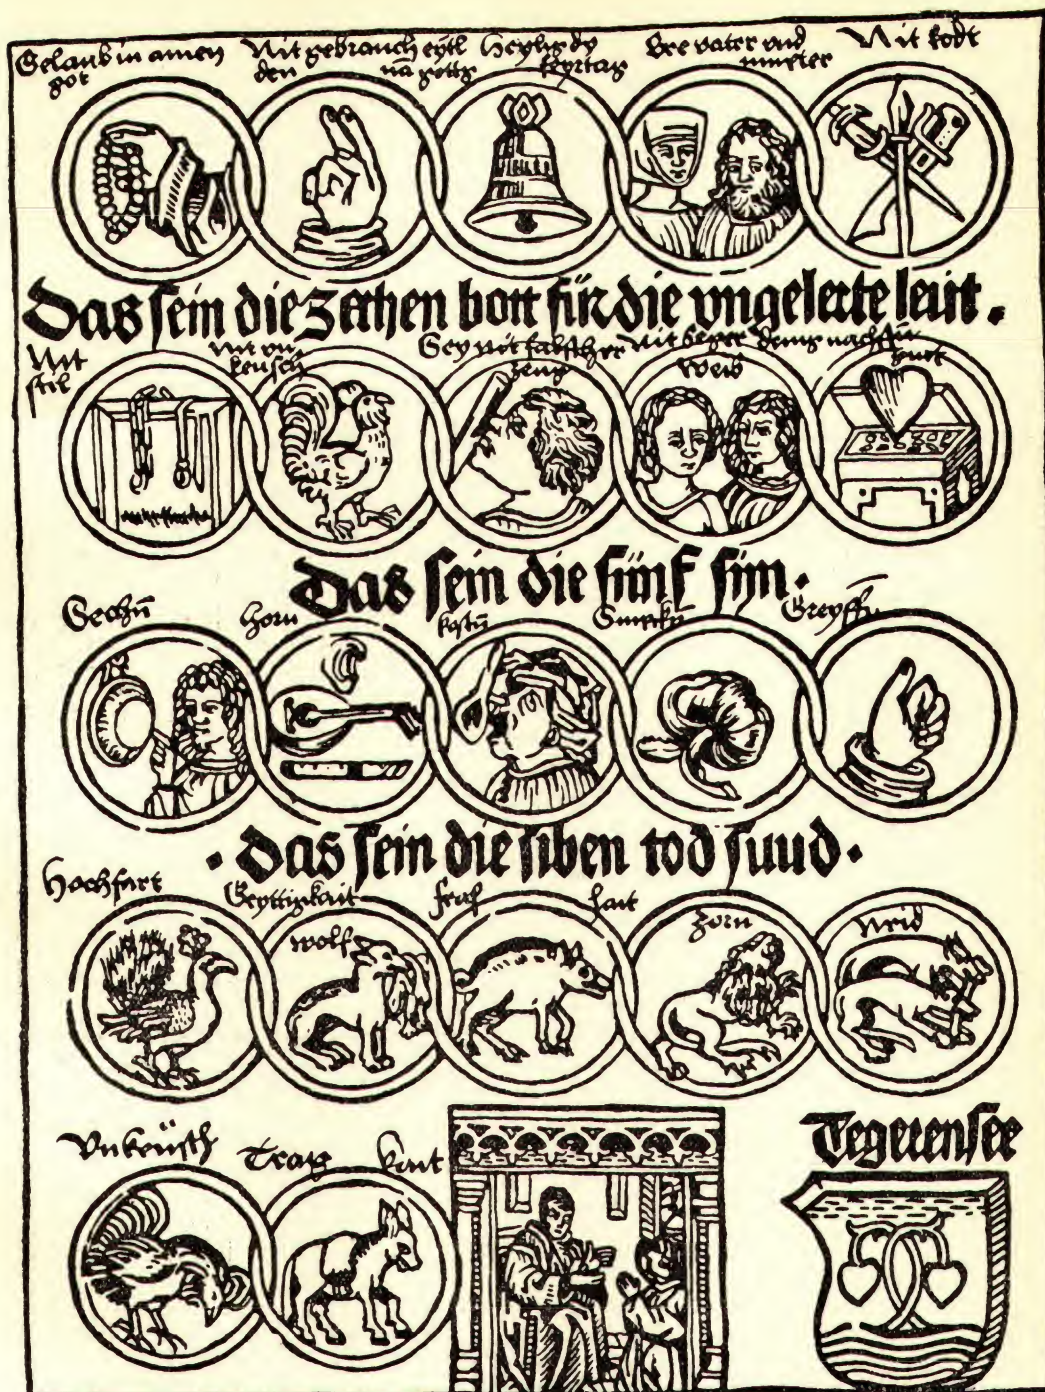 Gelaub in ainen got
Nit gebrauch eytl den nā gottz
Heylig dy feyrtag
Eee vater und mueter
Nit todt
Das sein die zethen bott für die ungelerte leut.
Nit stil
Nit vn keusch
Sey nit falscher zeug
Nit beger
Weib
guet
Das sein die fünf syn.
Sechn̄
Horn
kostn̄
Smeckn̄
Greyffn̄
· Das sein die siben tod suud ·
Hochfart
Geyttigkait
wolf
fras
hait
Zorn
Neid
Vnkeüsch
Trag kait
Tegerensee